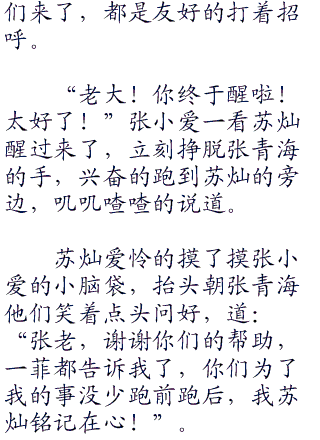 们来了，都是友好的打着招
呼。
“老大！你终于醒啦！
太好了！”张小爱一看苏灿
醒过来了，立刻挣脱张青海
的手，兴奋的跑到苏灿的旁
边，叽叽喳喳的说道。
苏灿爱怜的摸了摸张小
爱的小脑袋，抬头朝张青海
他们笑着点头问好，道：
“张老，谢谢你们的帮助，
一菲都告诉我了，你们为了
我的事没少跑前跑后，我苏
灿铭记在心！”。